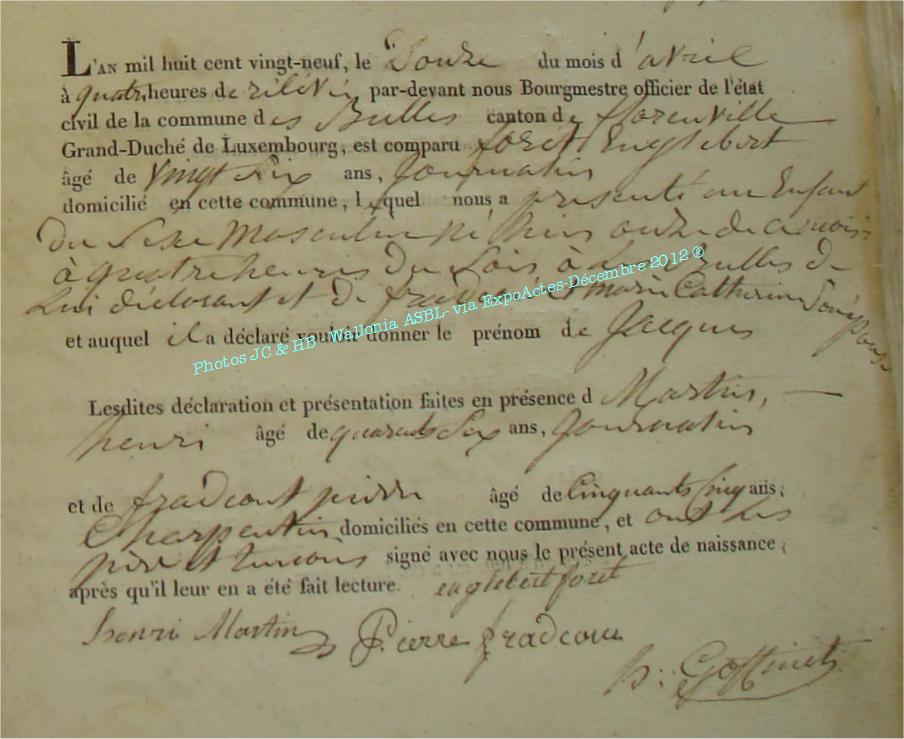 L'AN mil huit cent vingt-neuf, le Douze du mois d'avril
à quatre heures de rélévée par-devant nous Bourgmestre officier de l'état
civil de la commune des Bulles canton de florenville
Grand-Duché de Luxembourg, est comparu foret Englebert
âgé de vingt Six ans, Journalier
domicilié en cette commune, lequel nous a présenté un Enfant
du Sexe Masculin né hier onze de ce mois
à quatre heures du Soir à Les Bulles de
Lui déclarant et de Marie Catherine Son épouse
et auquel il a déclaré vouloir donner le prénom de Jacques
Photos JC & HB - Wallonia ASBL- via ExpoActes-Décembre 2012 ®
Lesdites déclaration et présentation faites en présence d Martin,
henri âgé de quarante Six ans, Journalier
et de fradcourt pierre âgé de Cinquante Cinq ans,
Charpentier domiciliés en cette commune, et ont les
père et temoins signé avec nous le présent acte de naissance,
après qu'il leur en a été fait lecture. englebert foret
henri Martin Pierre fradcour
h: Goffinet